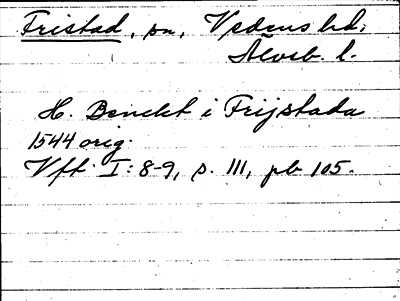 Fristad, sn, Vedens hd;
Älvsb. l.
H. Benckt i Frijstada
1544 orig.
Vft I: 8-9, s. 111, pb 105.